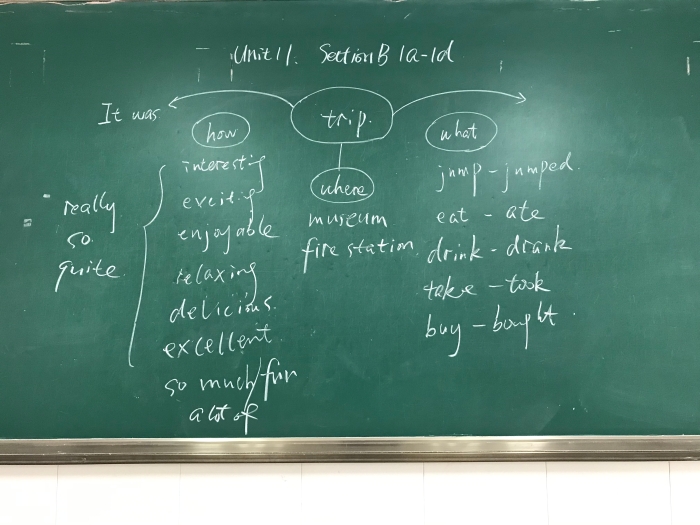 Unit 11. Section B 1a-1d
It was
trip.
how
interesting
exciting
enjoyable
relaxing
delicious.
excellent.
so much/fun
a lot of
really
so
quite
where
museum
fire station
what
jump - jumped.
eat - ate
drink - drank
take - took
buy - bought.